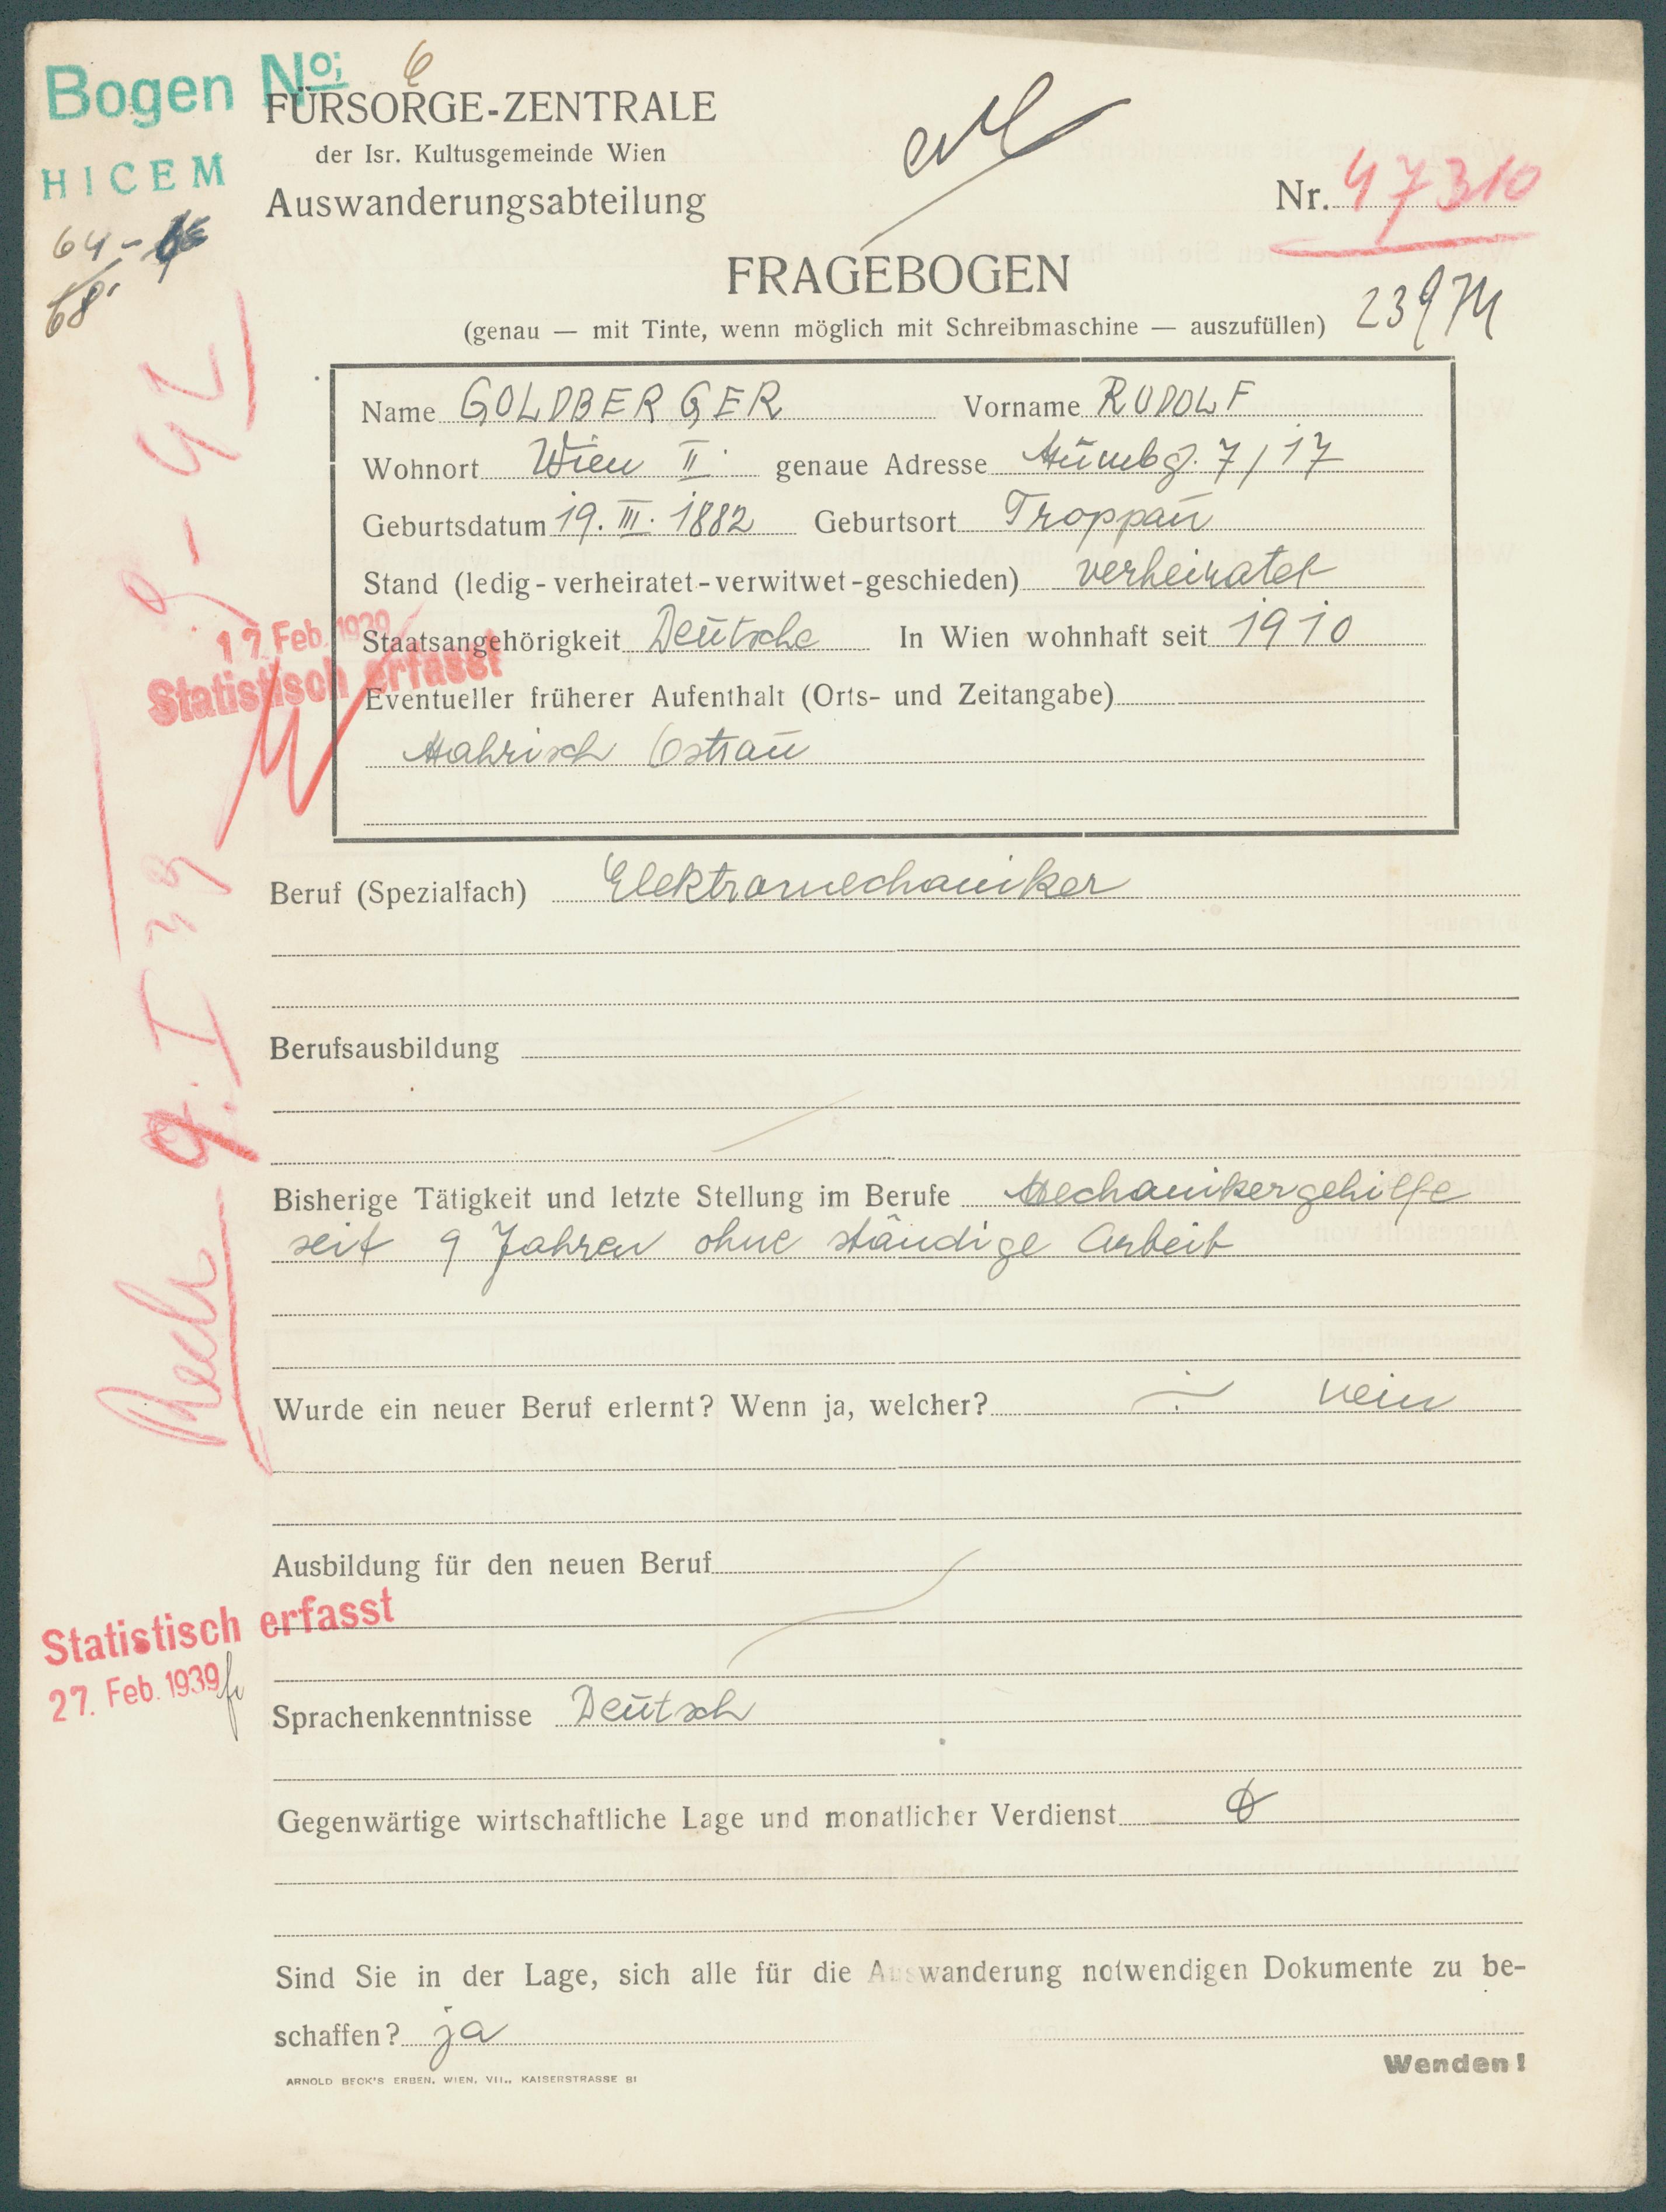 Bogen No: 6
FÜRSORGE-ZENTRALE
der Isr. Kultusgemeinde Wien
HICEM
Auswanderungsabteilung
Nr. 47310
64-
68
FRAGEBOGEN
(genau — mit Tinte, wenn möglich mit Schreibmaschine — auszufüllen)
Name GOLDBERGER Vorname RUDOLF
Wohnort Wien II. genaue Adresse 7/17
Geburtsdatum 19. III. 1882 Geburtsort Troppau
Stand (ledig-verheiratet-verwitwet-geschieden) verheiratet
17. Feb. 1939
Staatsangehörigkeit Deutsche In Wien wohnhaft seit 1910
Statistisch erfasst
Eventueller früherer Aufenthalt (Orts- und Zeitangabe)
Mahrisch Ostrau
Beruf (Spezialfach) Elektromechaniker
9. I 39
Berufsausbildung
Bisherige Tätigkeit und letzte Stellung im Berufe Mechanikergehilfe
seit 9 Jahren ohne ständige Arbeit
Wurde ein neuer Beruf erlernt? Wenn ja, welcher? nein
Ausbildung für den neuen Beruf
Statistisch erfasst
27. Feb. 1939
Sprachenkenntnisse Deutsch
Gegenwärtige wirtschaftliche Lage und monatlicher Verdienst
Sind Sie in der Lage, sich alle für die Auswanderung notwendigen Dokumente zu be-
schaffen? ja
Wenden!
ARNOLD BECK'S ERBEN, WIEN, VII., KAISERSTRASSE 81